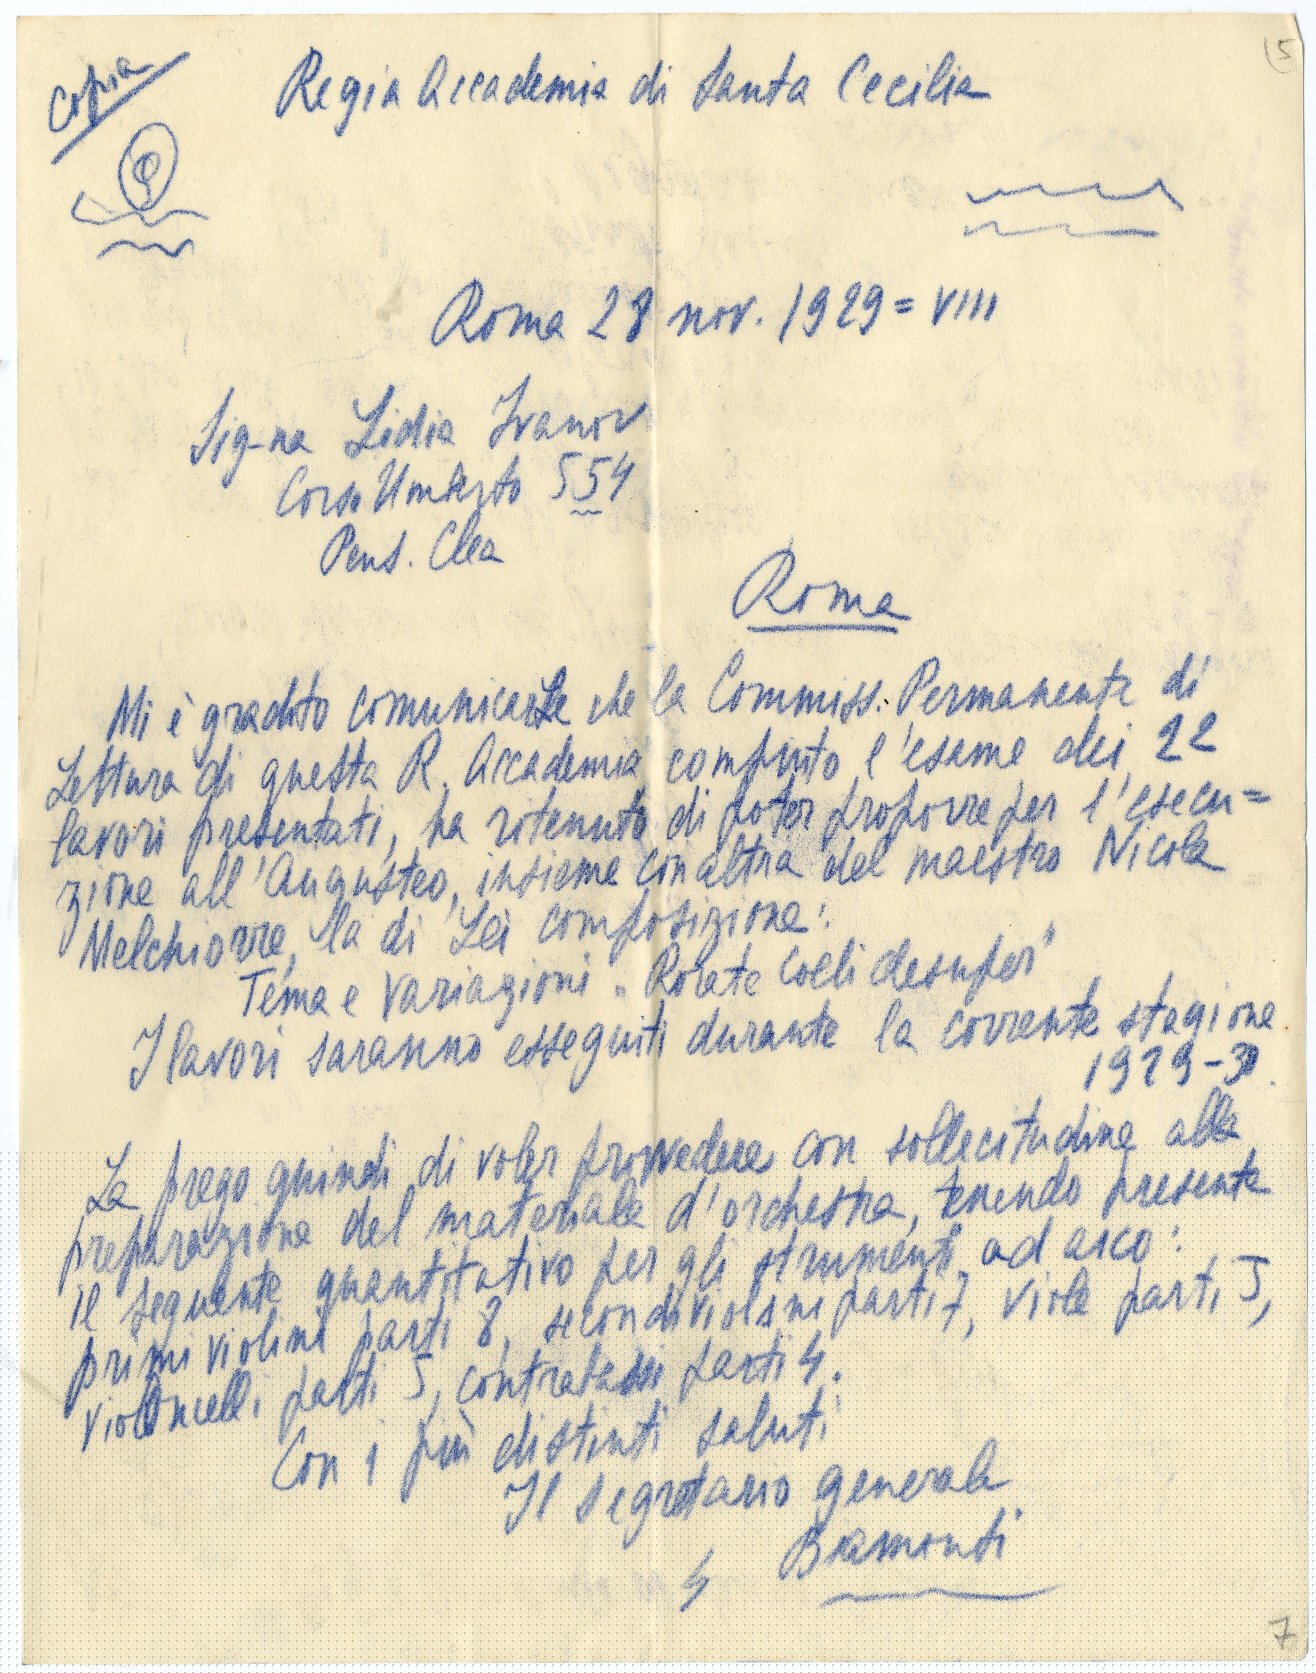 (5
Copia
Regia Accademia di Santa Cecilia
Roma 28 nov. 1929 = VIII
Sig-na Lidia Ivanov
Corso Umberto 554
Pens. Clea
Roma
Mi è gradito comunicarLe che la Commiss. Permanente di
Lettura di questa R. Accademia compiuto l'esame dei 22
lavori presentati, ha ritenuto di poter proporre per l'esecu=
zione all'Augusteo, insieme con altra del maestro Nicola
Melchiorre, la di Lei composizione:
Tema e variazioni "Rorate Coeli desuper"
I lavori saranno esseguiti durante la corrente stagione
1929-30.
La prego quindi di voler provvedere con sollecitudine alla
preparazione del materiale d'orchestra, tenendo presente
il seguente quantitativo per gli strumenti ad arco:
primi violini parti 8, secondi violini parti 7, viole parti 5,
violoncelli parti 5, contrabassi parti 4.
Con i più distinti saluti
Il segretario generale
Biamonti
4
7